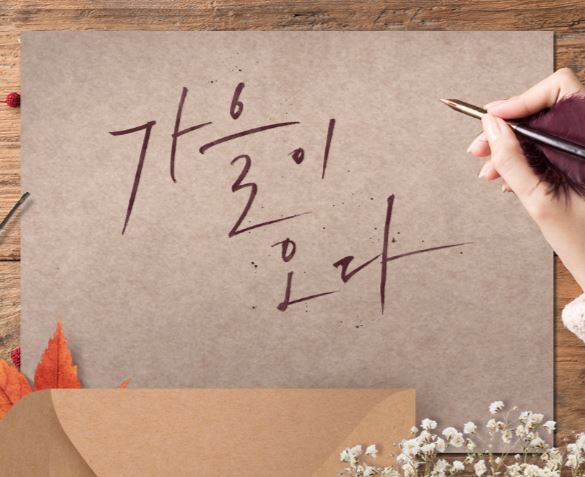 가을이
오다